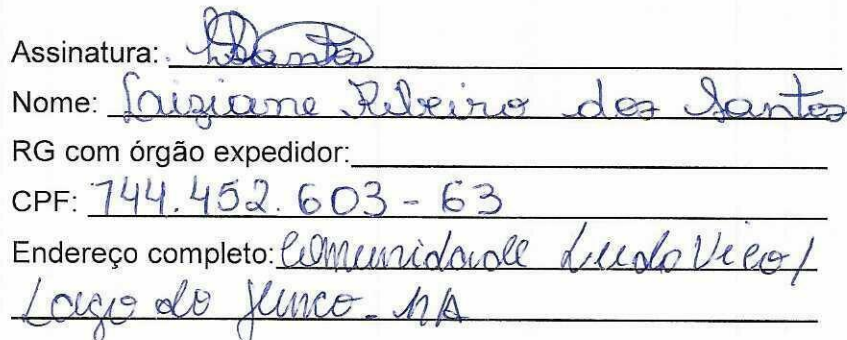 Assinatura: Santos
Nome: Laiziane Ribeiro dos Santos
RG com órgão expedidor:
CPF: 744.452.603-63
Endereço completo: Comunidade Ludovico/
Lago do Junco - MA